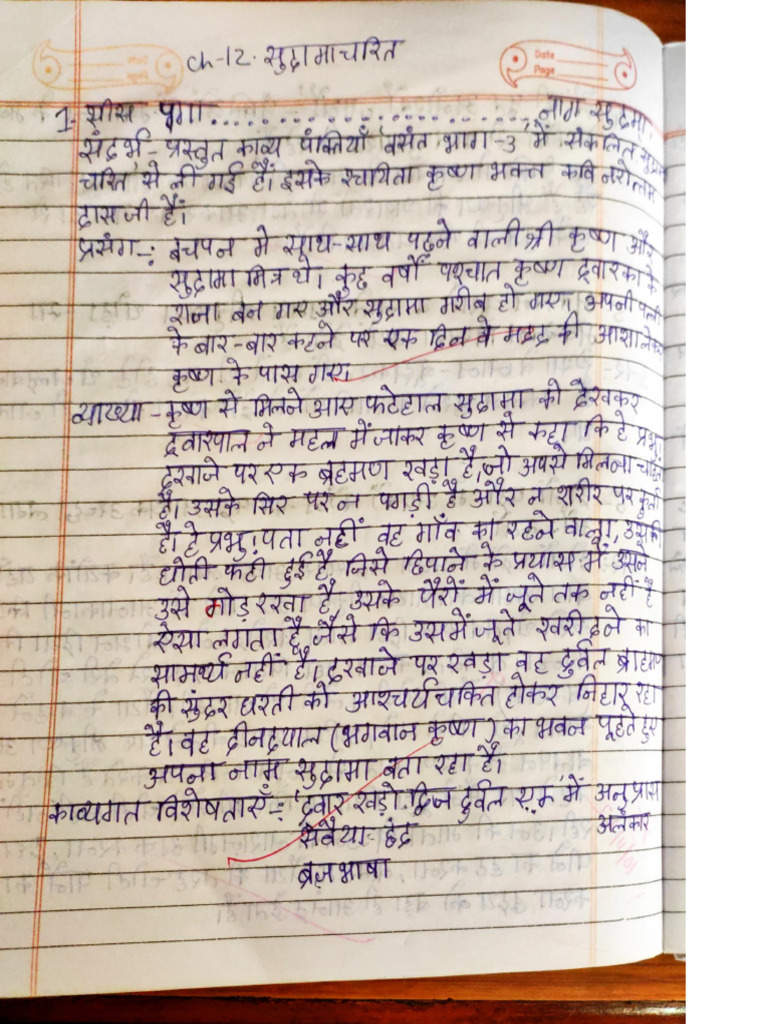 Date
Page
ch-12. सुदामाचरित
1- शीस पगा ........................ नाम सुदामा।
संदर्भ - प्रस्तुत काव्य पंक्तियाँ 'वसंत भाग-3' में संकलित सुदामा
चरित' से ली गई हैं। इसके रचयिता कृष्ण भक्त कवि नरोत्तम
दास जी हैं।
प्रसंग -: बचपन मे साथ-साथ पढ़ने वाली श्री कृष्ण और
सुदामा मित्र थे। कुछ वर्षों पश्चात कृष्ण द्वारका के
राजा बन गए और सुदामा गरीब हो गए। अपनी पत्नी
के बार-बार कहने पर एक दिन वे मदद की आशा लेकर
कृष्ण के पास गए।
व्याख्या - कृष्ण से मिलने आए फटेहाल सुदामा को देखकर
द्वारपाल ने महल में जाकर कृष्ण से कहा कि हे प्रभु!
दरवाजे पर एक ब्रहमण खड़ा है, जो आपसे मिलना चाहता
है। उसके सिर पर न पगड़ी है और न शरीर पर कुर्ता
है। हे प्रभु! पता नहीं वह गाँव का रहने वाला, उसकी
धोती फटी हुई है, जिसे छिपाने के प्रयास में उसने
उसे मोड़ रखा है, उसके पैरों में जूते तक नहीं है
ऐसा लगता है, जैसे कि उसमें जूते खरीदने का
सामर्थ्य नहीं है। दरवाजे पर खड़ा वह दुर्बल ब्राहमण
की सुंदर धरती को आश्चर्यचकित होकर निहार रहा
है। वह दीनदयाल (भगवान कृष्ण) का भवन पूछते हुए
अपना नाम सुदामा बता रहा है।
काव्यगत विशेषताएँ -: 'द्वार खड़ो द्विज दुर्बल एक' में अनुप्रास
अलंकार
सवैया - छंद
ब्रज़ भाषा